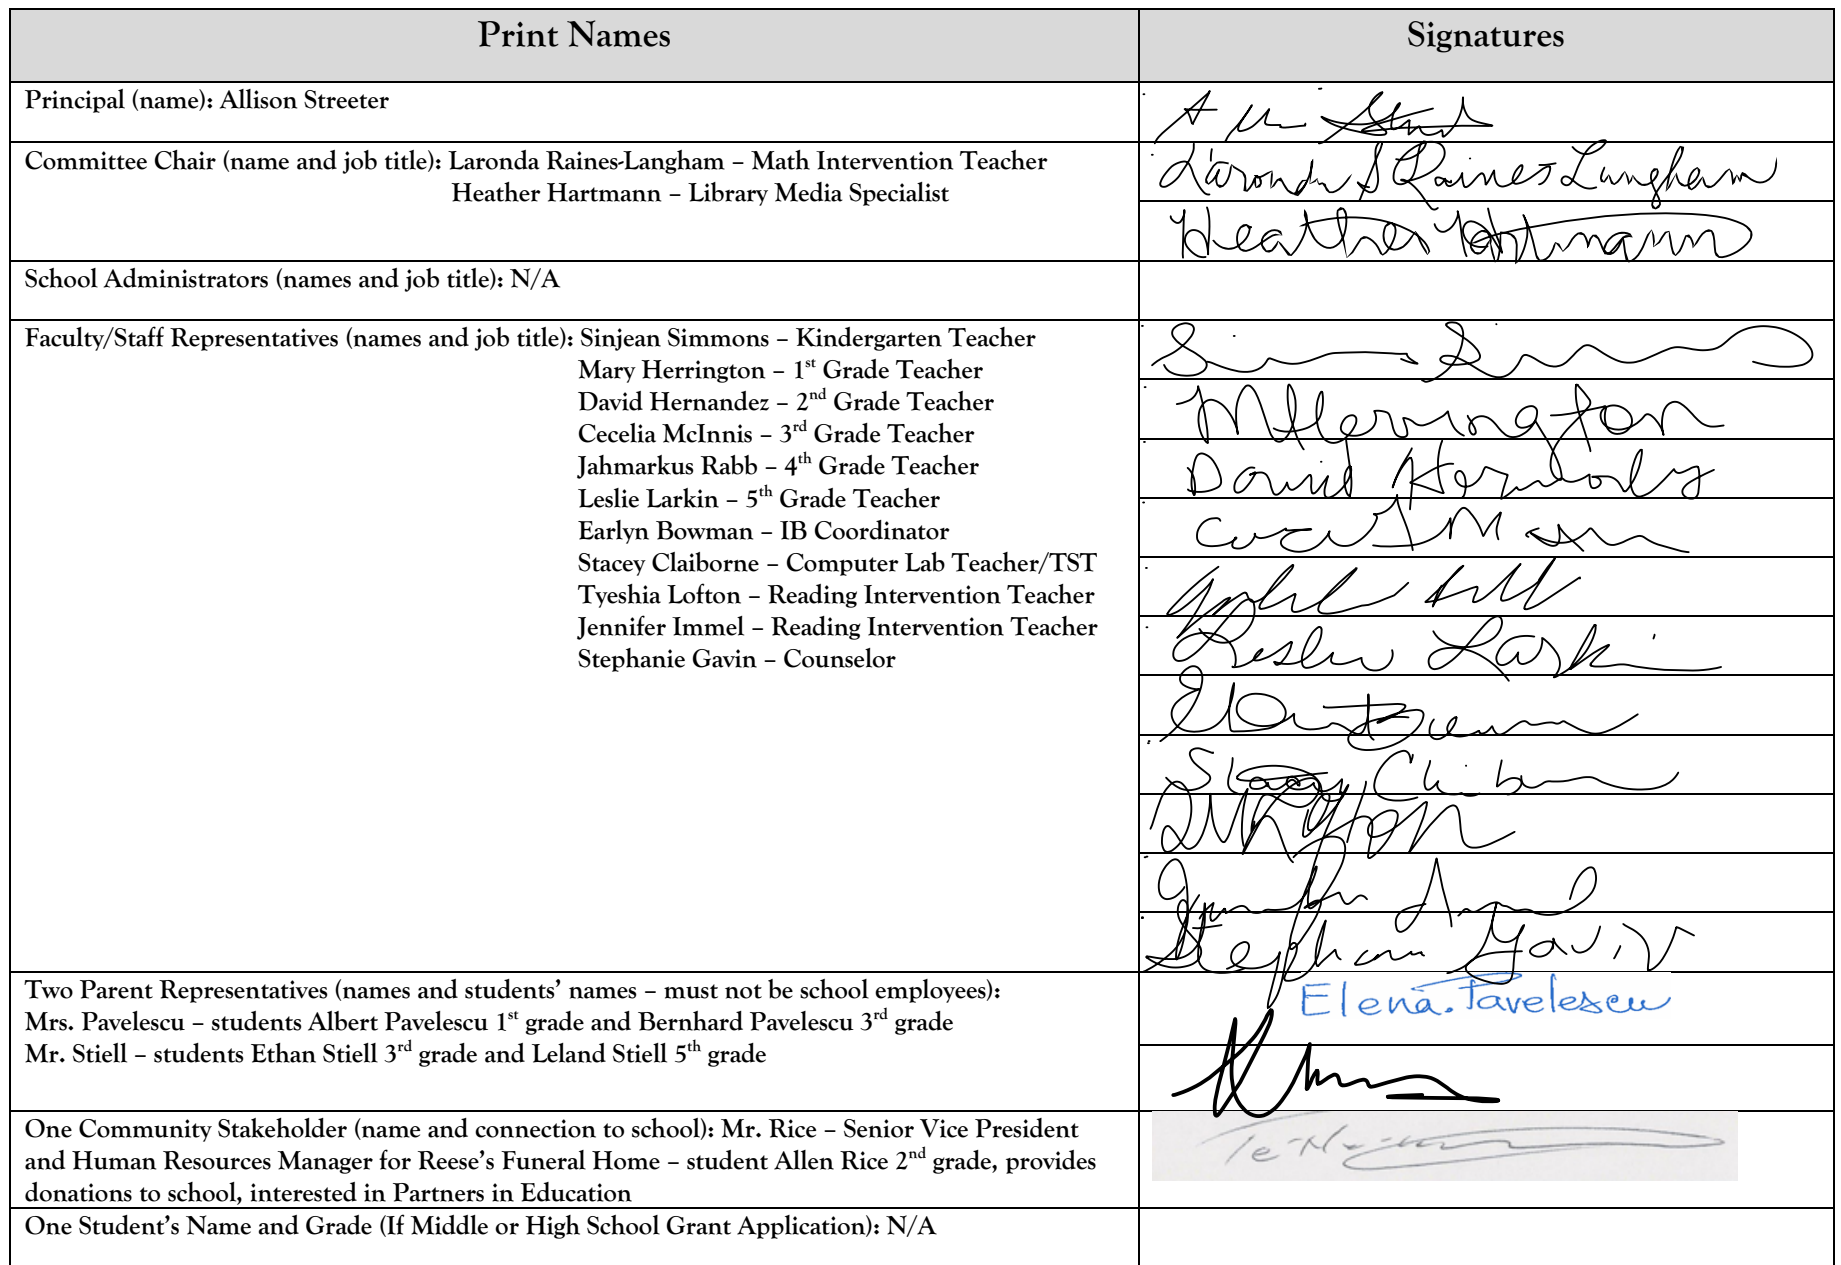 Print Names
Signatures
Principal (name): Allison Streeter
Committee Chair (name and job title): Laronda Raines-Langham – Math Intervention Teacher
Laronda S Raines Langham
Heather Hartmann – Library Media Specialist
Heather Hartmann
School Administrators (names and job title): N/A
Faculty/Staff Representatives (names and job title): Sinjean Simmons – Kindergarten Teacher
Mary Herrington – 1st Grade Teacher
David Hernandez – 2nd Grade Teacher
Cecelia McInnis – 3rd Grade Teacher
Jahmarkus Rabb – 4th Grade Teacher
Leslie Larkin – 5th Grade Teacher
Earlyn Bowman – IB Coordinator
Stacey Claiborne – Computer Lab Teacher/TST
Tyeshia Lofton – Reading Intervention Teacher
Jennifer Immel – Reading Intervention Teacher
Stephanie Gavin – Counselor
MHerrington
David Hernandez
Leslie Larkin
Two Parent Representatives (names and students’ names – must not be school employees):
Mrs. Pavelescu – students Albert Pavelescu 1st grade and Bernhard Pavelescu 3rd grade
Mr. Stiell – students Ethan Stiell 3rd grade and Leland Stiell 5th grade
Elena. Pavelescu
One Community Stakeholder (name and connection to school): Mr. Rice – Senior Vice President
and Human Resources Manager for Reese’s Funeral Home – student Allen Rice 2nd grade, provides
donations to school, interested in Partners in Education
One Student’s Name and Grade (If Middle or High School Grant Application): N/A